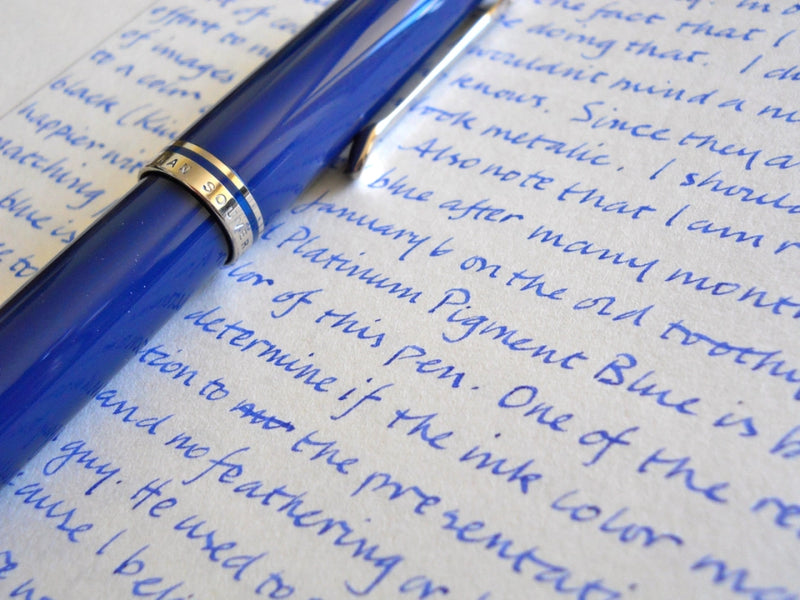 of
effort to
of images
to a color
black
happier
matching
blue is
to
the fact that I
doing that. I
wouldnt mind a
knows. Since they
look metalic. I
Also note that I am
blue after many
January 6 on the old
Platinum Pigment Blue is
of this pen. One of the
determine if the ink color
to the presentati
and no feathering or
guy. He used to
I
AN SOUVER